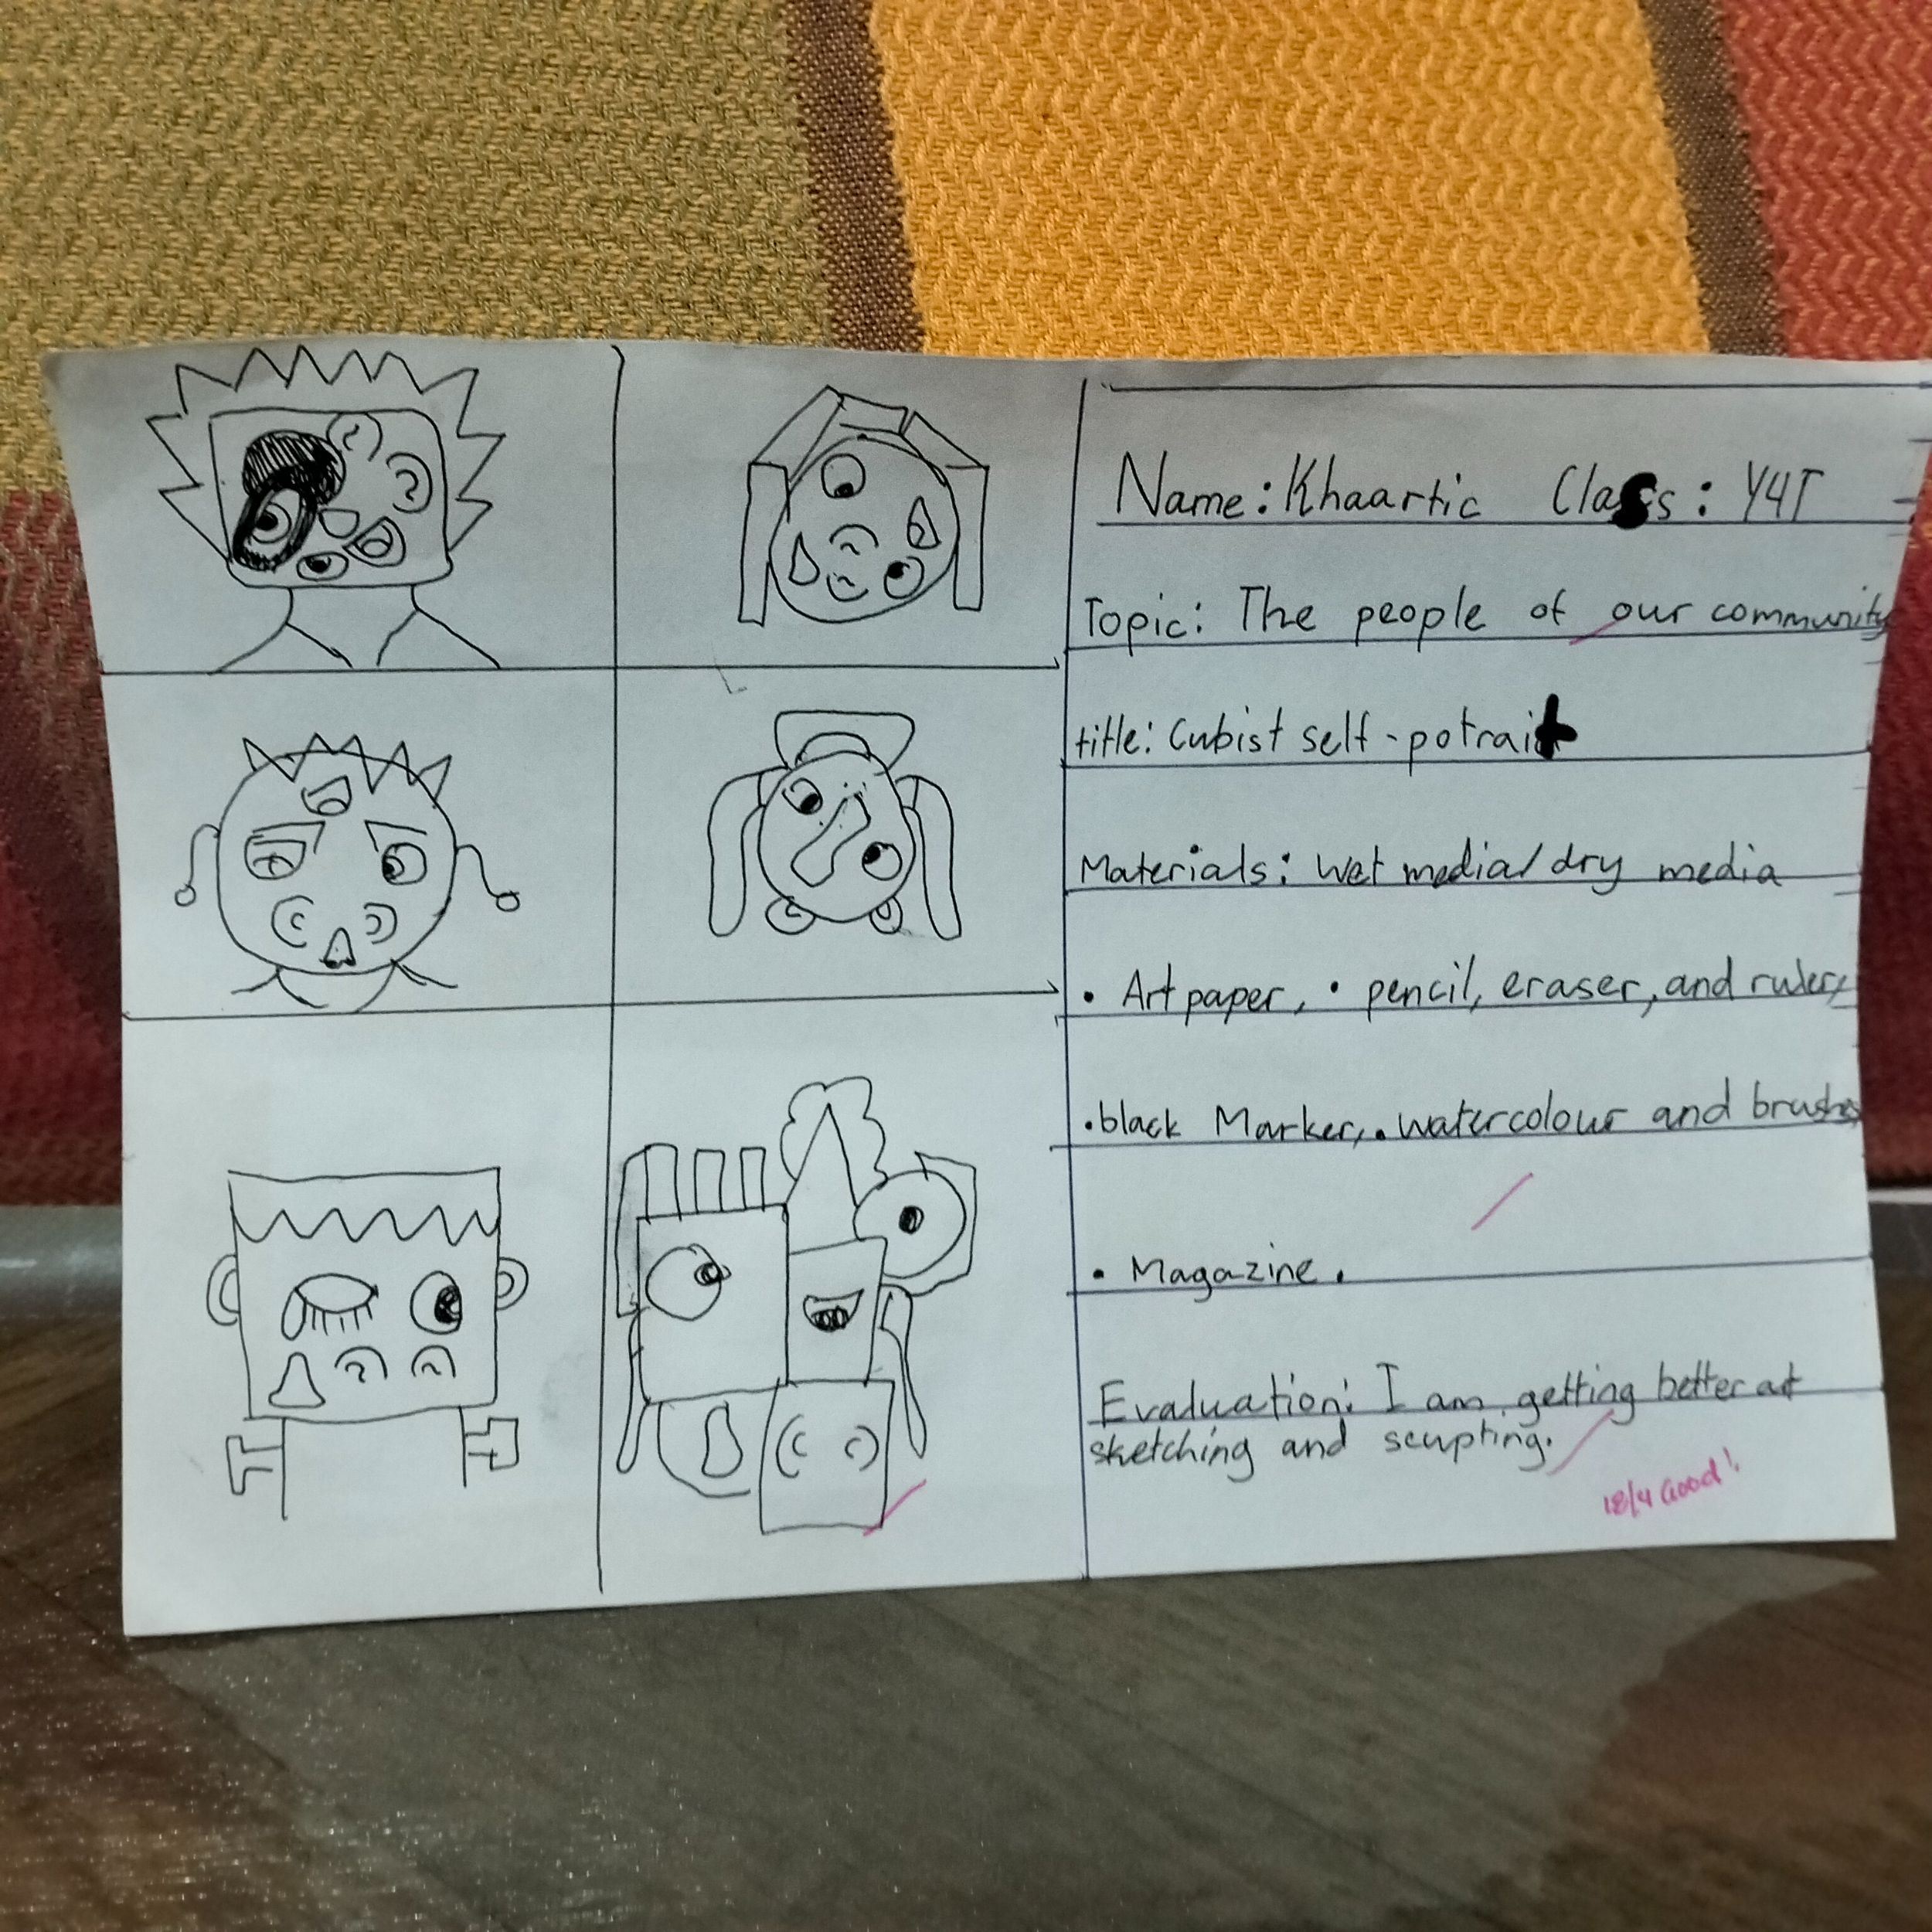 Name: Khaartic Class: Y4T
Topic: The people of our community
title: Cubist self-potrait
Materials: Wet media/dry media
• Art paper, • pencil, eraser, and ruler,
• black Marker, • watercolour and brushes
• Magazine.
Evaluation: I am getting better at
sketching and scupting.
18/4 Good!